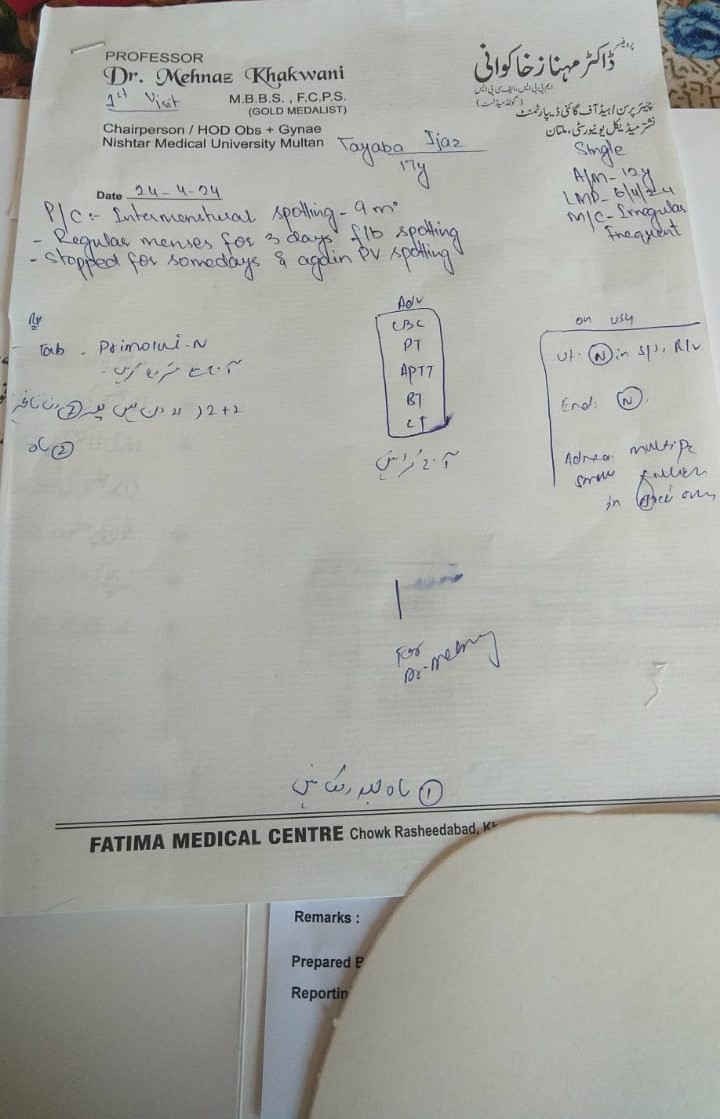 PROFESSOR
Dr. Mehnaz Khakwani
1st Visit
M.B.B.S. , F.C.P.S.
(GOLD MEDALIST)
Chairperson / HOD Obs + Gynae
Nishtar Medical University Multan
پروفیسر
ڈاکٹر مہناز خاکوانی
ایم بی بی ایس، ایف سی پی ایس
(گولڈ میڈلسٹ)
چیئرپرسن / ہیڈ آف گائنی ڈیپارٹمنٹ
نشتر میڈیکل یونیورسٹی، ملتان
Tayaba Ijaz
17y
Single
A/M- 12y
LMP- 6/4/24
M/C- Irregular
Frequent
Date 24-4-24
P/C:- Intermenstrual spotting - 9 m°
- Regular menses for 3 days f/b spotting
- Stopped for somedays & again PV spotting
Rx
Tab - Primolut-N
2+2
Adv
CBC
PT
APTT
BT
CT
on USG
Ut. N in S/S, R/V
End: N
Adnexa multiple
small
in only
For
① ماہ بعد
FATIMA MEDICAL CENTRE Chowk Rasheedabad,
Remarks :
Prepared
Reportin